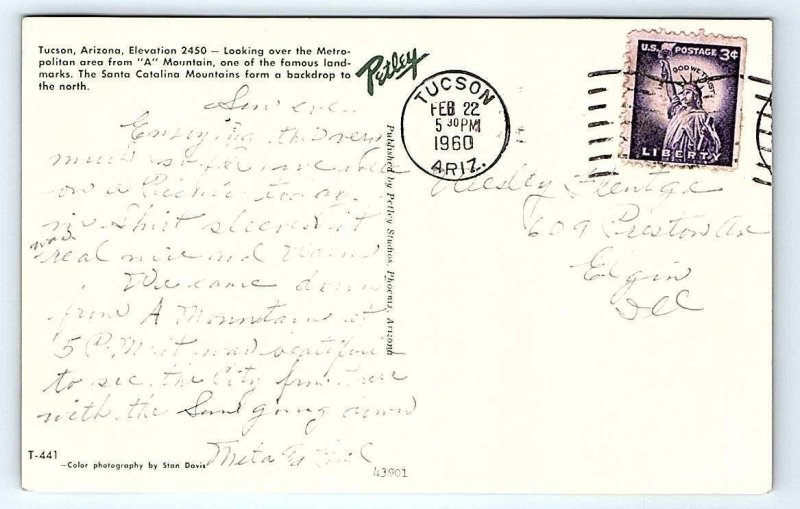 Tucson, Arizona, Elevation 2450 — Looking over the Metro-
politan area from "A" Mountain, one of the famous land-
marks. The Santa Catalina Mountains form a backdrop to
the north.
Petley
TUCSON
FEB 22
5 30 PM
1960
ARIZ.
U.S. POSTAGE 3¢
IN GOD WE TRUST
LIBERTY
Sun eve.
Enjoying this very
much so far, we were
on a Picnic today
in shirt sleeves it
was
real nice and warm
We came down
from A Mountain at
5 P.M. it was beautiful
to see the City from there
with the Sun going down
Meta
Published by Petley Studios, Phoenix, Arizona
Wesley
609 Preston Ave
Elgin
Ill
T-441
—Color photography by Stan Davis
43901